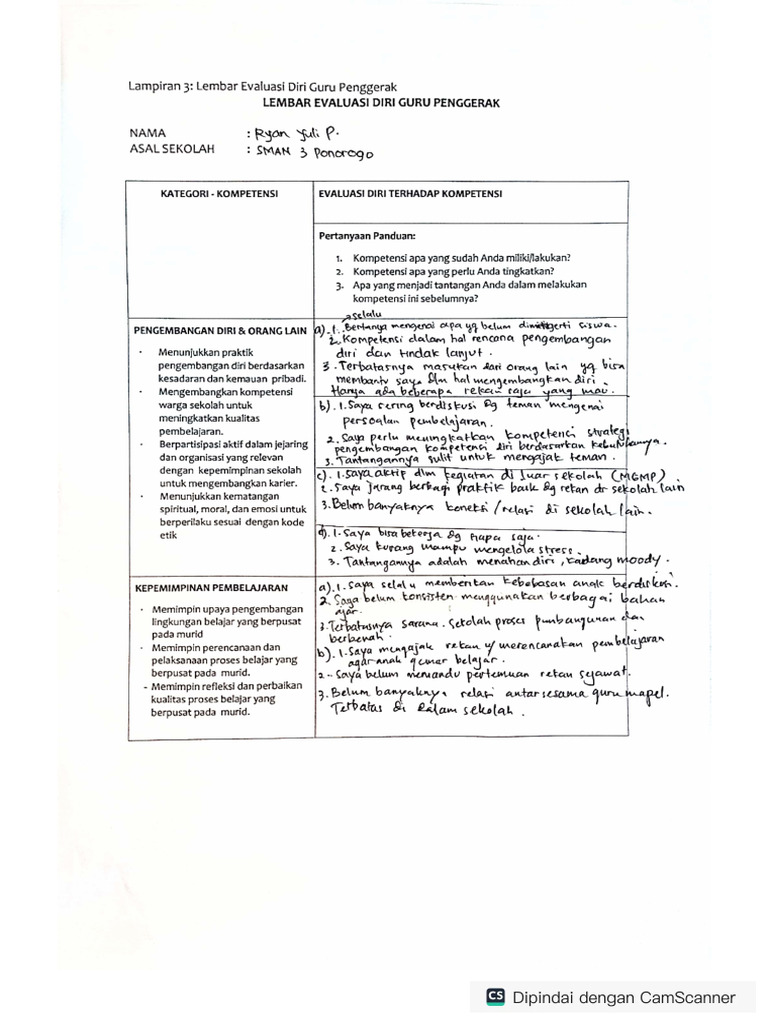 Lampiran 3: Lembar Evaluasi Diri Guru Penggerak
LEMBAR EVALUASI DIRI GURU PENGGERAK
NAMA : Ryan Yuli P.
ASAL SEKOLAH : SMAN 3 Ponorogo
KATEGORI - KOMPETENSI
EVALUASI DIRI TERHADAP KOMPETENSI
Pertanyaan Panduan:
1. Kompetensi apa yang sudah Anda miliki/lakukan?
2. Kompetensi apa yang perlu Anda tingkatkan?
3. Apa yang menjadi tantangan Anda dalam melakukan
kompetensi ini sebelumnya?
PENGEMBANGAN DIRI & ORANG LAIN
· Menunjukkan praktik
pengembangan diri berdasarkan
kesadaran dan kemauan pribadi.
· Mengembangkan kompetensi
warga sekolah untuk
meningkatkan kualitas
pembelajaran.
· Berpartisipasi aktif dalam jejaring
dan organisasi yang relevan
dengan kepemimpinan sekolah
untuk mengembangkan karier.
· Menunjukkan kematangan
spiritual, moral, dan emosi untuk
berperilaku sesuai dengan kode
etik
selalu
a). 1. Bertanya mengenai apa yg belum dimengerti siswa.
2. Kompetensi dalam hal rencana pengembangan
diri dan tindak lanjut.
3. Terbatasnya masukan dari orang lain yg bisa
membantu saya dlm hal mengembangkan diri.
Hanya ada beberapa rekan saja yang mau.
b). 1. Saya sering berdiskusi dg teman mengenai
persoalan pembelajaran.
2. Saya perlu meningkatkan kompetensi strategi
pengembangan kompetensi diri berdasarkan kebutuhannya.
3. Tantangannya sulit untuk mengajak teman.
c). 1. Saya aktif dlm kegiatan di luar sekolah (MGMP).
2. Saya jarang berbagi praktik baik dg rekan dr sekolah lain
3. Belum banyaknya koneksi/relasi di sekolah lain.
d). 1. Saya bisa bekerja dg siapa saja.
2. Saya kurang mampu mengelola stress.
3. Tantangannya adalah menahan diri, kadang moody.
KEPEMIMPINAN PEMBELAJARAN
· Memimpin upaya pengembangan
lingkungan belajar yang berpusat
pada murid
· Memimpin perencanaan dan
pelaksanaan proses belajar yang
berpusat pada murid.
- Memimpin refleksi dan perbaikan
kualitas proses belajar yang
berpusat pada murid.
a). 1. Saya selalu memberikan kebebasan anak berdiskusi.
2. Saya belum konsisten menggunakan berbagai bahan
ajar.
3. Terbatasnya sarana. Sekolah proses pembangunan dan
berbenah.
b). 1. Saya mengajak rekan u/ merencanakan pembelajaran
agar anak gemar belajar.
2. Saya belum memandu pertemuan rekan sejawat.
3. Belum banyaknya relasi antar sesama guru mapel.
Terbatas di dalam sekolah.
CS Dipindai dengan CamScanner